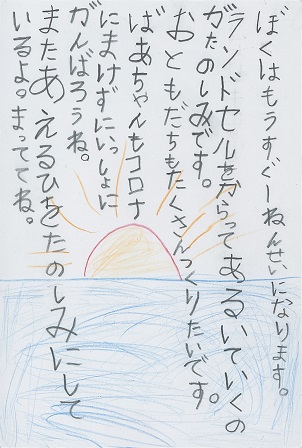 ぼくはもうすぐ一ねんせいになります。
ランドセルをからってあるいていくの
がたのしみです。
おともだちもたくさんつくりたいです。
ばあちゃんもコロナ
にまけずにいっしょに
がんばろうね。
またあえるひをたのしみにして
いるよ。まっててね。